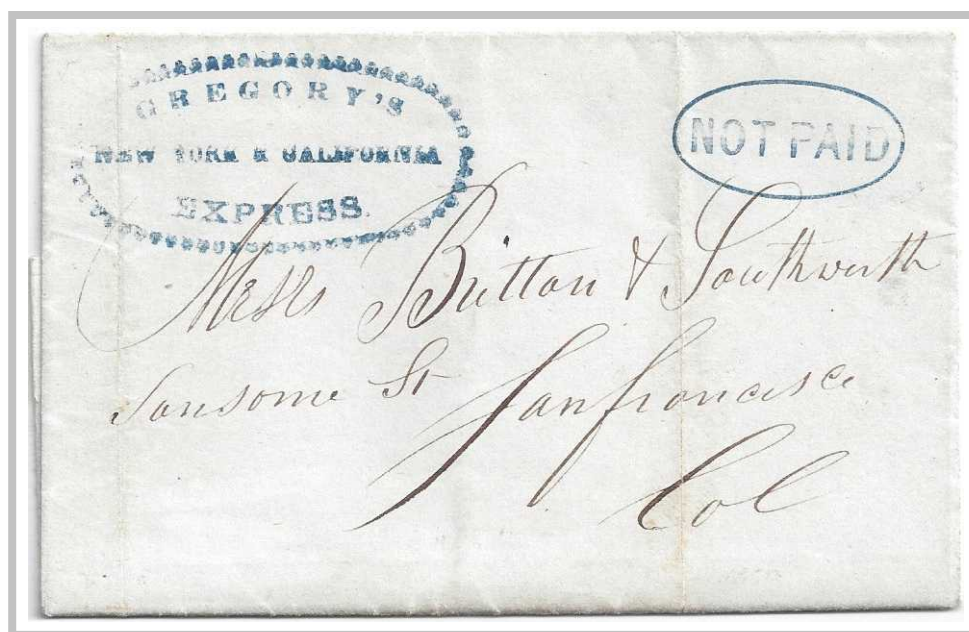 GREGORY'S
NEW YORK & CALIFORNIA
EXPRESS.
NOT PAID
Messrs Britton & Southworth
Sansome St Sanfrancisco
Cal